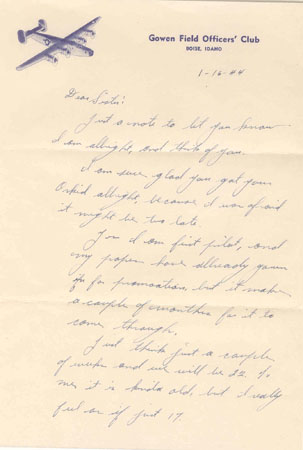 Gowen Field Officers' Club
BOISE, IDAHO
1-16-44
Dear Sister:
Just a note to let you know
I am allright, and think of you.
I am sure glad you got your
Orkid allright, because I was afraid
it might be too late.
Yes I am first pilot, and
my papers have allready gone
for promotion, but it makes
a couple of months for it to
come through.
Just think just a couple
of weeks and we will be 22. To
me, it is kinda old, but I really
feel as if just 17.